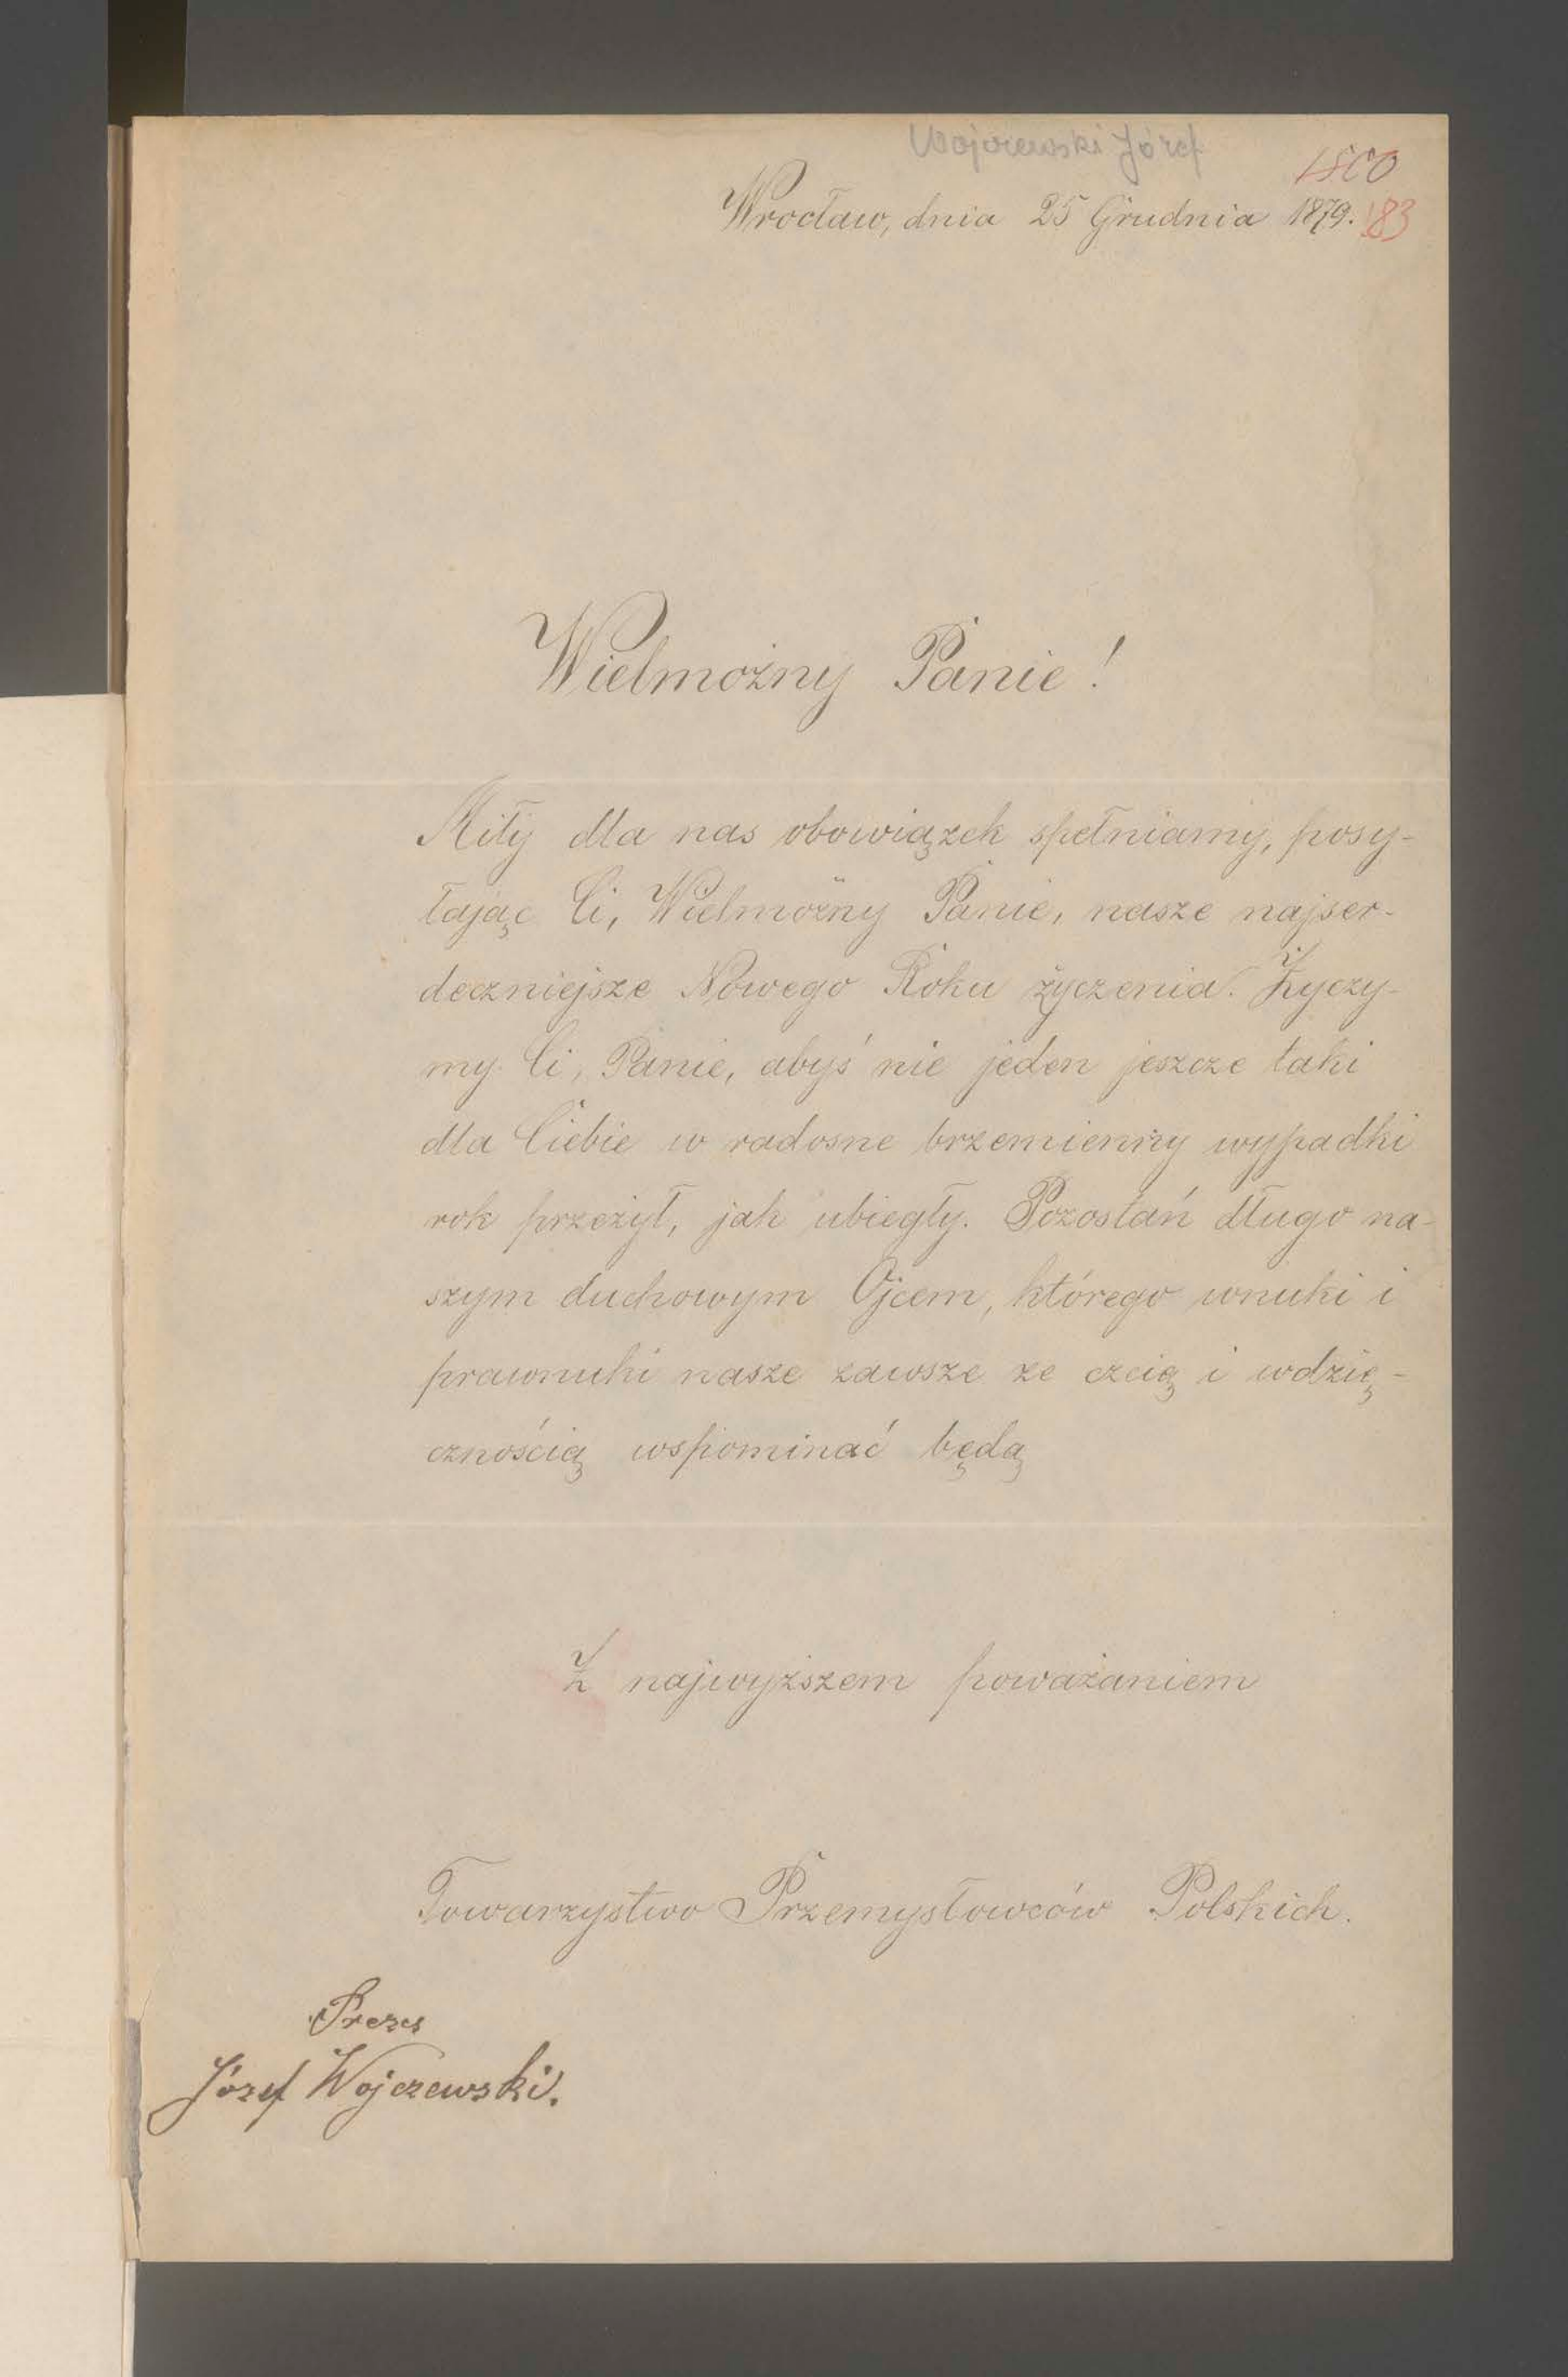 Wojczewski Józef
1800
Wrocław, dnia 25 Grudnia 1879. 183
Wielmożny Panie!
Miły dla nas obowiązek spełniamy, posy-
łając Ci, Wielmożny Panie, nasze najser-
deczniejsze Nowego Roku życzenia. Życzy-
my Ci, Panie, abyś nie jeden jeszcze taki
dla Ciebie w radosne brzemienny wypadki
rok przeżył, jak ubiegły. Pozostań długo na-
szym duchowym Ojcem, którego wnuki i
prawnuki nasze zawsze ze czcią i wdzię-
cznością wspominać będą
Z najwyższem poważaniem
Towarzystwo Przemysłowców Polskich.
Prezes
Józef Wojczewski.